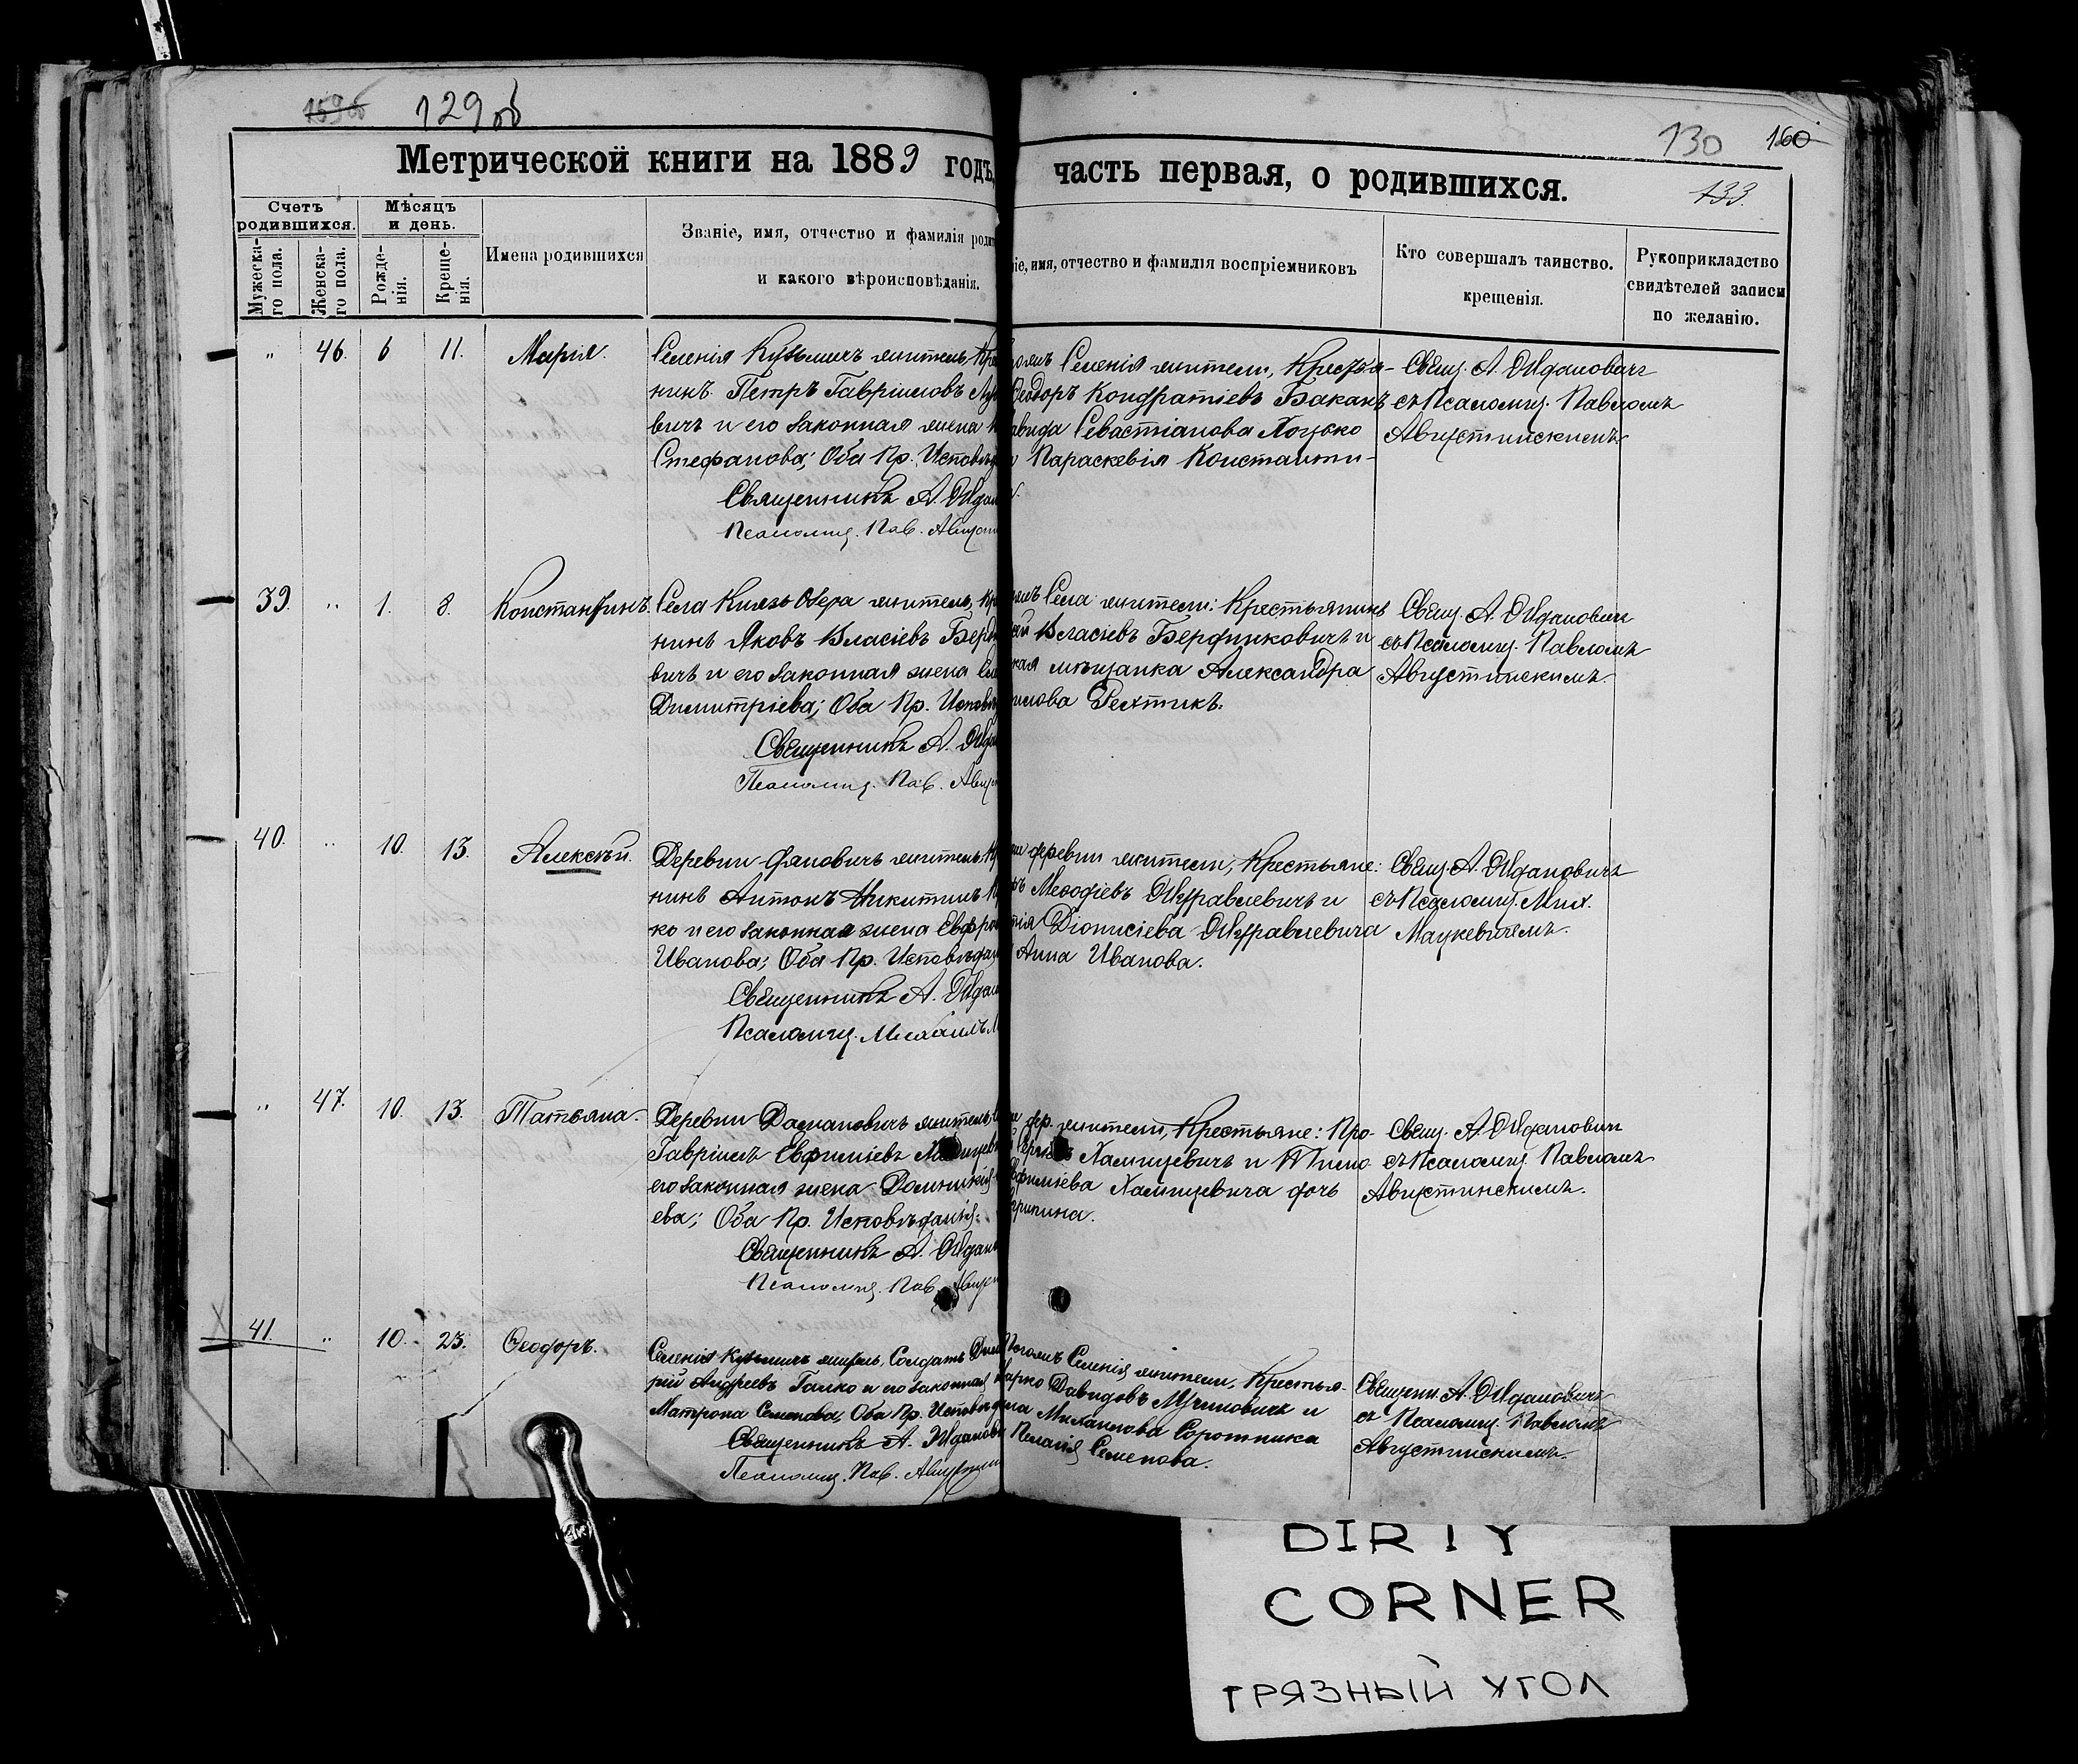 129 об
130 160
133.
Метрической книги на 1889 годъ, часть первая, о родившихся.
Счетъ родившихся.
Мужеска-го пола.
Женска-го пола.
Мѣсяцъ и день.
Рожде-нія.
Креще-нія.
Имена родившихся
Званіе, имя, отчество и фамилія роди
и какого вѣроисповѣданія.
іе, имя, отчество и фамилія воспріемниковъ
Кто совершалъ таинство.
крещенія.
Рукоприкладство
свидѣтелей записи
по желанію.
" 46. 6 11. Марія.
Селенія Кузьмичъ житель, Кре
нинъ Петръ Гавріиловъ
вичъ и его законная жена
Стефанова; Оба Пр. Исповѣд
Священникъ А. Ждан
Псаломщ. Пав. Августи
Селенія жители, Крестья-
Ѳеодоръ Кондратіевъ Баканъ
Севастіанова
Параскевія Константи-
Свящ. А. Ждановичъ
съ Псаломщ. Павломъ
Августинскимъ.
39. " 1. 8. Константинъ.
Села Князь Озера житель, Кр
нинъ Яковъ Власіевъ Берд
вичъ и его законная жена
Димитріева; Оба Пр. Исповѣ
Священникъ А. Жда
Псаломщ. Пав. Авгу
Села жители: Крестьянинъ
Власіевъ Бердниковичъ и
кая мѣщанка Александра
Рехтикъ.
Свящ. А. Ждановичъ
съ Псаломщ. Павломъ
Августинскимъ.
40. " 10. 13. Алексѣй.
Деревни Яновичъ житель, Кр
нинъ Антонъ Никитинъ
ко и его законная жена Евфро
Иванова; Оба Пр. Исповѣдан
Священникъ А. Ждан
Псаломщ. Михаилъ М
деревни жители, Крестьяне:
Меѳодіевъ Журавлевичъ и
Діонисіева Журавлевича
Анна Иванова.
Свящ. А. Ждановичъ
съ Псаломщ. Мих.
Мацкевичемъ.
" 47. 10. 13. Татьяна.
Деревни Домановичъ житель,
Гавріилъ Евфиміевъ
его законная жена Домникія
ева; Оба Пр. Исповѣданія:
Священникъ А. Ждан
Псаломщ. Пав. Августи
дер. жители, Крестьяне: Про-
Халицевичъ и Тимо
Евфиміева Халицевича дочь
Агрипина.
Свящ. А. Ждановичъ
съ Псаломщ. Павломъ
Августинскимъ.
41. " 10. 23. Ѳеодоръ.
Селенія Кузьмичъ житель, Солдатъ Дими
рій Андреевъ Галко и его законная
Матрона Семенова, Оба Пр. Исповѣд
Священникъ А. Жданови
Псаломщ. Пав. Августин
Селенія жители, Крестья-
Марко Давидовъ и
Михаилова Соротника
Пелагія Семенова.
Священ. А. Ждановичъ
съ Псаломщ. Павломъ
Августинскимъ.
DIRTY
CORNER
ГРЯЗНЫЙ УГОЛ